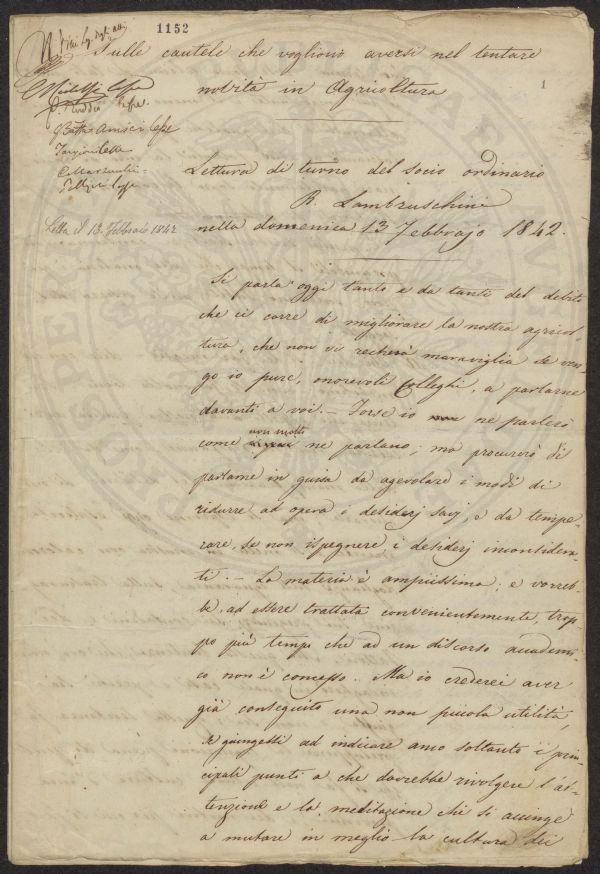 1152
1
Sulle cautele che vogliono aversi nel tentare
novità in Agricoltura
G. Batta Amici
Letta il 13. Febbraio 1842
Lettura di turno del socio ordinario
R. Lambruschini
nella domenica 13 Febbrajo 1842.
Si parla oggi tanto e da tanti del debito
che ci corre di migliorare la nostra agricol-
tura, che non vi recherà maraviglia se ven-
go io pure, onorevoli Colleghi, a parlarne
davanti a voi. — Forse io non ne parlerò
come non molti ne parlano; ma procurerò di
parlarne in guisa da agevolare i modi di
ridurre ad opera i desiderj savj, e da tempe-
rare, se non ispegnere i desiderj inconsidera-
ti. — La materia è ampiissima; e vorreb-
be, ad essere trattata convenientemente, trop-
po più tempo che ad un discorso accademi-
co non è concesso. Ma io crederei aver
già conseguito una non piccola utilità,
se giungessi ad indicare anco soltanto i prin-
cipali punti a che dovrebbe rivolgere l'at-
tenzione e la meditazione chi si accinge
a mutare in meglio la cultura dei